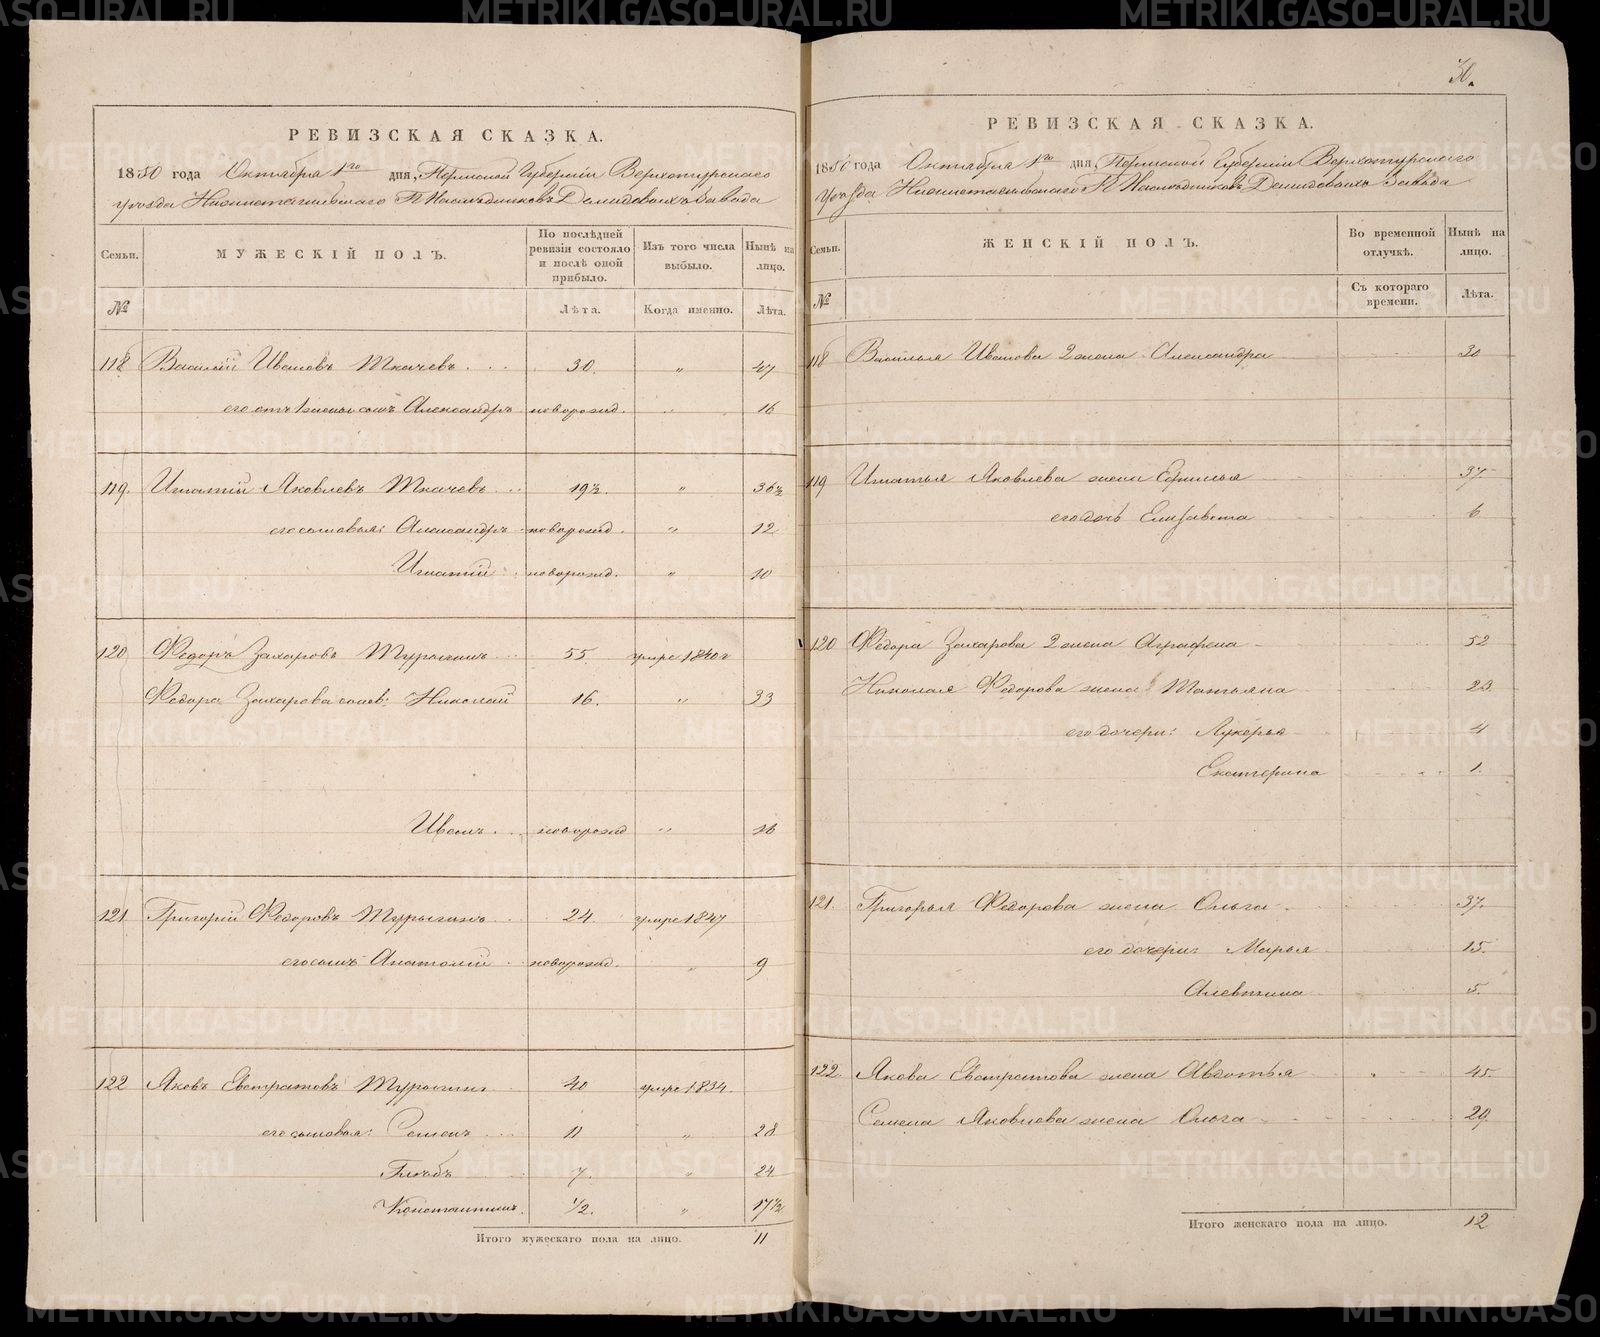 РЕВИЗСКАЯ СКАЗКА.
1850 года Октября 1го дня, Пермской Губерніи Верхотурскаго
уѣзда Нижнетагильскаго Гг Наслѣдниковъ Демидовыхъ Завода
Семьи. МУЖЕСКІЙ ПОЛЪ. По послѣдней ревизіи состояло и послѣ оной прибыло. Изъ того числа выбыло. Нынѣ на лицо.
№ Лѣта. Когда именно. Лѣта.
118 Василій Ивановъ Ткачевъ 30. " 47
его отъ 1 жены сынъ Александръ новорожд. " 16
119. Игнатій Яковлевъ Ткачевъ 19½. " 36½
его сыновья: Александръ новорожд. " 12
Игнатій новорожд. " 10
120 Федоръ Захаровъ Турыгинъ 55 умре 1840 г
Федора Захарова сынов: Николай 16. " 33
Иванъ новорожд " 16
121. Григорій Федоровъ Турыгинъ 24. умре 1847
его сынъ Анатолій новорожд. " 9
122 Яковъ Евстратовъ Турыгинъ 40 умре 1834.
его сыновья: Семенъ 11 " 28
Глѣбъ 7. " 24
Константинъ. ½. " 17½
Итого мужескаго пола на лицо. 11
30.
РЕВИЗСКАЯ СКАЗКА.
1850 года Октября 1го дня, Пермской Губерніи Верхотурскаго
уѣзда Нижнетагильскаго Гг Наслѣдниковъ Демидовыхъ Завода
Семьи. ЖЕНСКІЙ ПОЛЪ. Во временной отлучкѣ. Нынѣ на лицо.
№ Съ котораго времени. Лѣта.
118 Василья Иванова 2 жена Александра 30
119 Игнатья Яковлева жена Ефимья 37
его дочь Елизавета 6
120 Федора Захарова 2 жена Аграфена 52
Николая Федорова жена Татьяна 23
его дочери: Лукерья 4
Екатерина 1.
121. Григорья Федорова жена Ольга 37.
его дочери: Марья 15.
Алевтина 5.
122. Якова Евстратова жена Авдотья 45.
Семена Яковлева жена Ольга 29
Итого женскаго пола на лицо. 12
METRIKI.GASO-URAL.RU